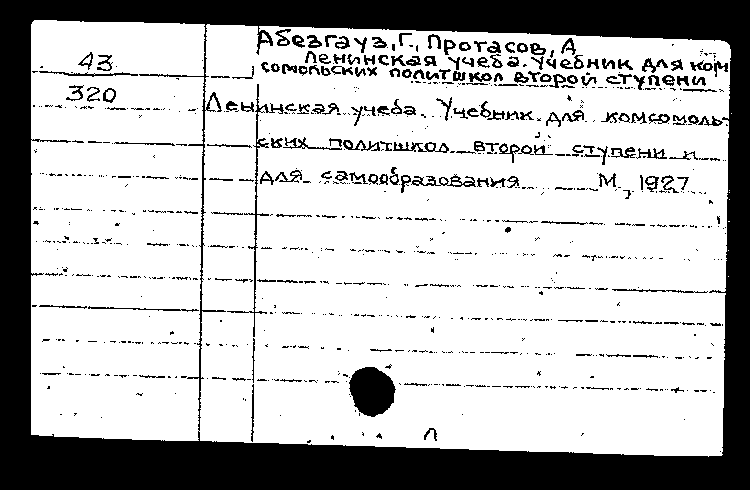 Абезгауз, Г., Протасов, А
43 Ленинская учеба. Учебник для ком
сомольских политшкол второй ступени
320 Ленинская учеба. Учебник для комсомоль-
ских политшкол второй ступени и
для самообразования М, 1927